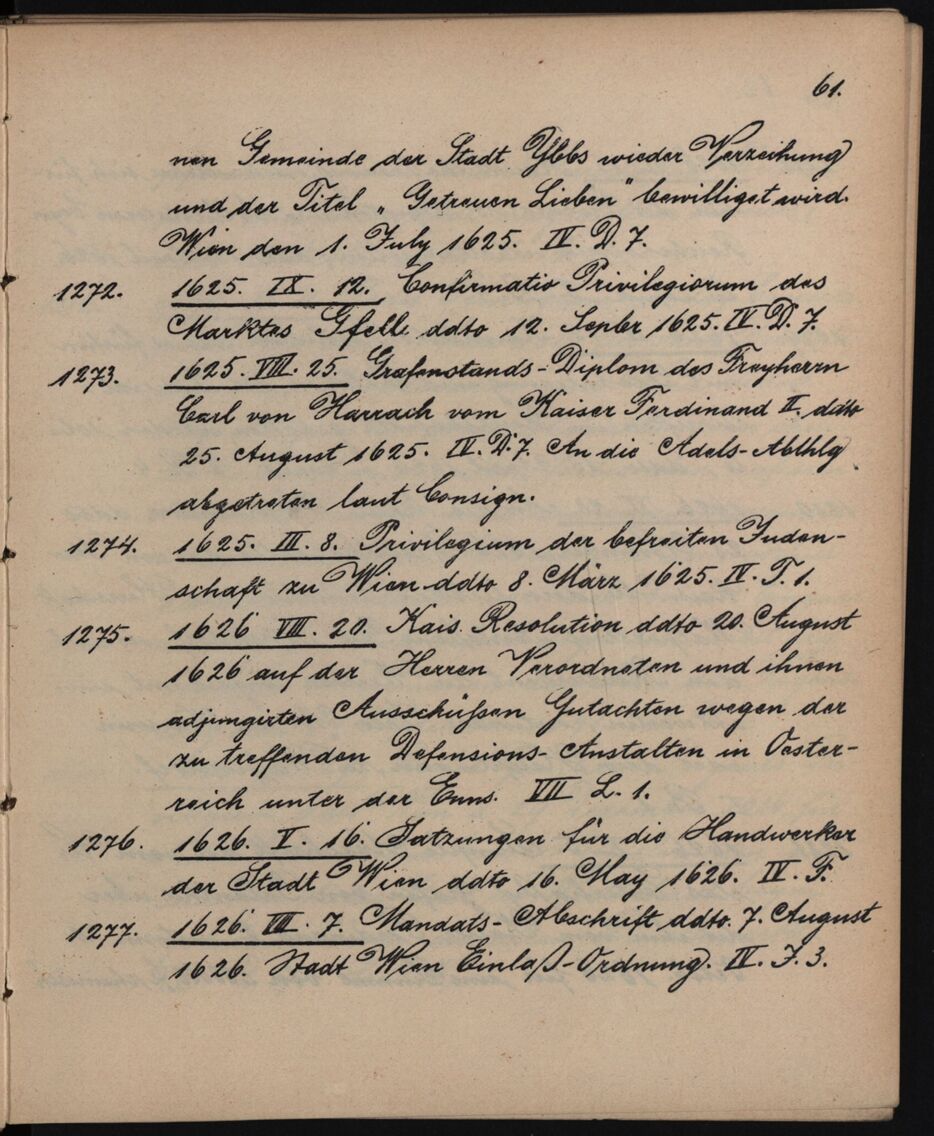 61.
nen Gemeinde der Stadt Ybbs wieder Verzeihung
und der Titel „Getreuen Lieben" bewilliget wird.
Wien den 1. July 1625. IV. D. 7.
1272. 1625. IX. 12. Confirmatio Privilegiorum des
Marktes Gfell ddto 12. Sepbr 1625. IV. D. 7.
1273. 1625. VIII. 25. Grafenstands-Diplom des Freyherrn
Carl von Harrach vom Kaiser Ferdinand II. ddto
25. August 1625. IV. D. 7. An die Adels-Abthlg
abgetreten laut Consign.
1274. 1625. III. 8. Privilegium der befreiten Juden-
schaft zu Wien ddto 8. März 1625. IV. T. 1.
1275. 1626 VIII. 20. Kais. Resolution ddto 20. August
1626 auf der Herren Verordneten und ihnen
adjungirten Ausschüßen Gutachten wegen der
zu treffenden Defensions-Anstalten in Oester-
reich unter der Enns. VII L. 1.
1276. 1626. V. 16. Satzungen für die Handwerker
der Stadt Wien ddto 16. May 1626. IV. F.
1277. 1626. VIII. 7. Mandats-Abschrift ddto. 7. August
1626. Stadt Wien Einlaß-Ordnung. IV. J. 3.